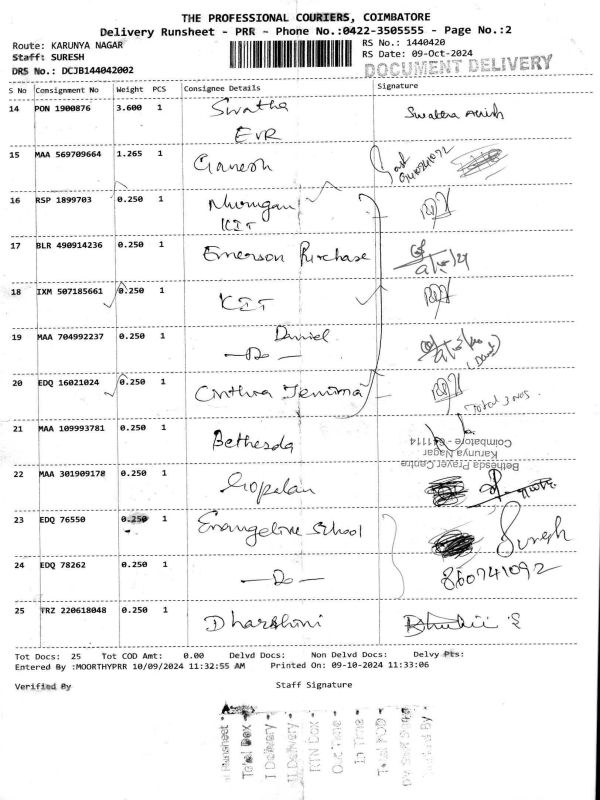 THE PROFESSIONAL COURIERS, COIMBATORE
Delivery Runsheet - PRR - Phone No.:0422-3505555 - Page No.:2
Route: KARUNYA NAGAR RS No.: 1440420
Staff: SURESH RS Date: 09-Oct-2024
DRS No.: DCJB144042002 DOCUMENT DELIVERY
S No Consignment No Weight PCS Consignee Details Signature
14 PON 1900876 3.600 1 Swatha
EVR
15 MAA 569709664 1.265 1 Ganesh
16 RSP 1899703 0.250 1 Murugan
KIT
17 BLR 490914236 0.250 1 Emerson Purchase
18 IXM 507185661 0.250 1 KIT
19 MAA 704992237 0.250 1 Daniel
— Do —
20 EDQ 16021024 0.250 1 Cinthia Jemima
Total 3 nos.
21 MAA 109993781 0.250 1 Bethesda
Bethesda Prayer Centre
Karunya Nagar
Coimbatore - 641114
22 MAA 301909178 0.250 1 Gopalan
23 EDQ 76550 0.250 1 Evangeline School Suresh
24 EDQ 78262 0.250 1 — Do — 860741092
25 TRZ 220618048 0.250 1 Dharshini
Tot Docs: 25 Tot COD Amt: 0.00 Delvd Docs: Non Delvd Docs: Delvy Pts:
Entered By :MOORTHYPRR 10/09/2024 11:32:55 AM Printed On: 09-10-2024 11:33:06
Verified By Staff Signature
Runsheet
Total Dox
I Delivery
II Delivery
RTN Dox
Out Time
In Time
Total POD